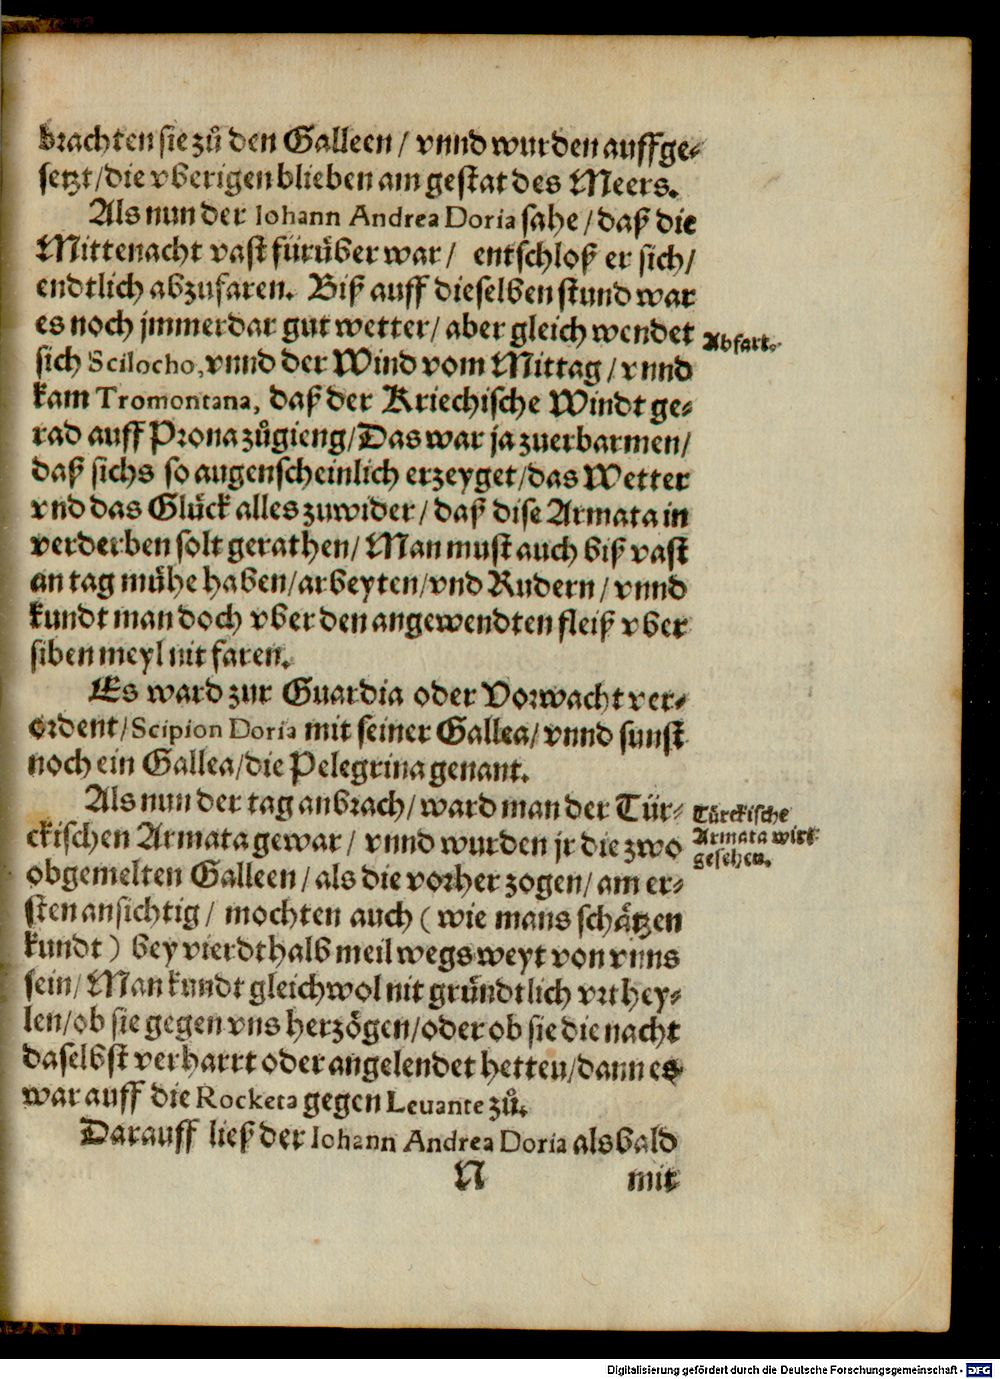 brachten sie zů den Galleen / vnnd wurden auffge-
setzt / die vberigen blieben am gestat des Meers.
Als nun der Iohann Andrea Doria sahe / daß die
Mittenacht vast fürüber war / entschloß er sich /
endtlich abzufaren. Biß auff dieselben stund war
es noch jmmerdar gut wetter / aber gleich wendet
Abfart.
sich Scilocho, vnnd der Wind vom Mittag / vnnd
kam Tromontana, daß der Kriechische Windt ge-
rad auff Prona zůgieng / Das war ja zuerbarmen /
daß sichs so augenscheinlich erzeyget / das Wetter
vnd das Glück alles zuwider / daß dise Armata in
verderben solt gerathen / Man must auch biß vast
an tag mühe haben / arbeyten / vnd Rudern / vnnd
kundt man doch vber den angewendten fleiß vber
siben meyl nit faren.
Es ward zur Guardia oder Vorwacht ver-
ordent / Scipion Doria mit seiner Gallea / vnnd sunst
noch ein Gallea / die Pelegrina genant.
Als nun der tag anbrach / ward man der Tür-
Türckische
Armata wirt
gesehen.
ckischen Armata gewar / vnnd wurden jr die zwo
obgemelten Galleen / als die vorher zogen / am er-
sten ansichtig / mochten auch ( wie mans schätzen
kundt ) bey vierdthalb meil wegs weyt von vnns
sein / Man kundt gleichwol nit gründtlich vrthey-
len / ob sie gegen vns herzögen / oder ob sie die nacht
daselbst verharrt oder angelendet hetten / dann es
war auff die Rocketa gegen Leuante zů.
Darauff ließ der Iohann Andrea Doria alsbald
N mit
Digitalisierung gefördert durch die Deutsche Forschungsgemeinschaft - DFG